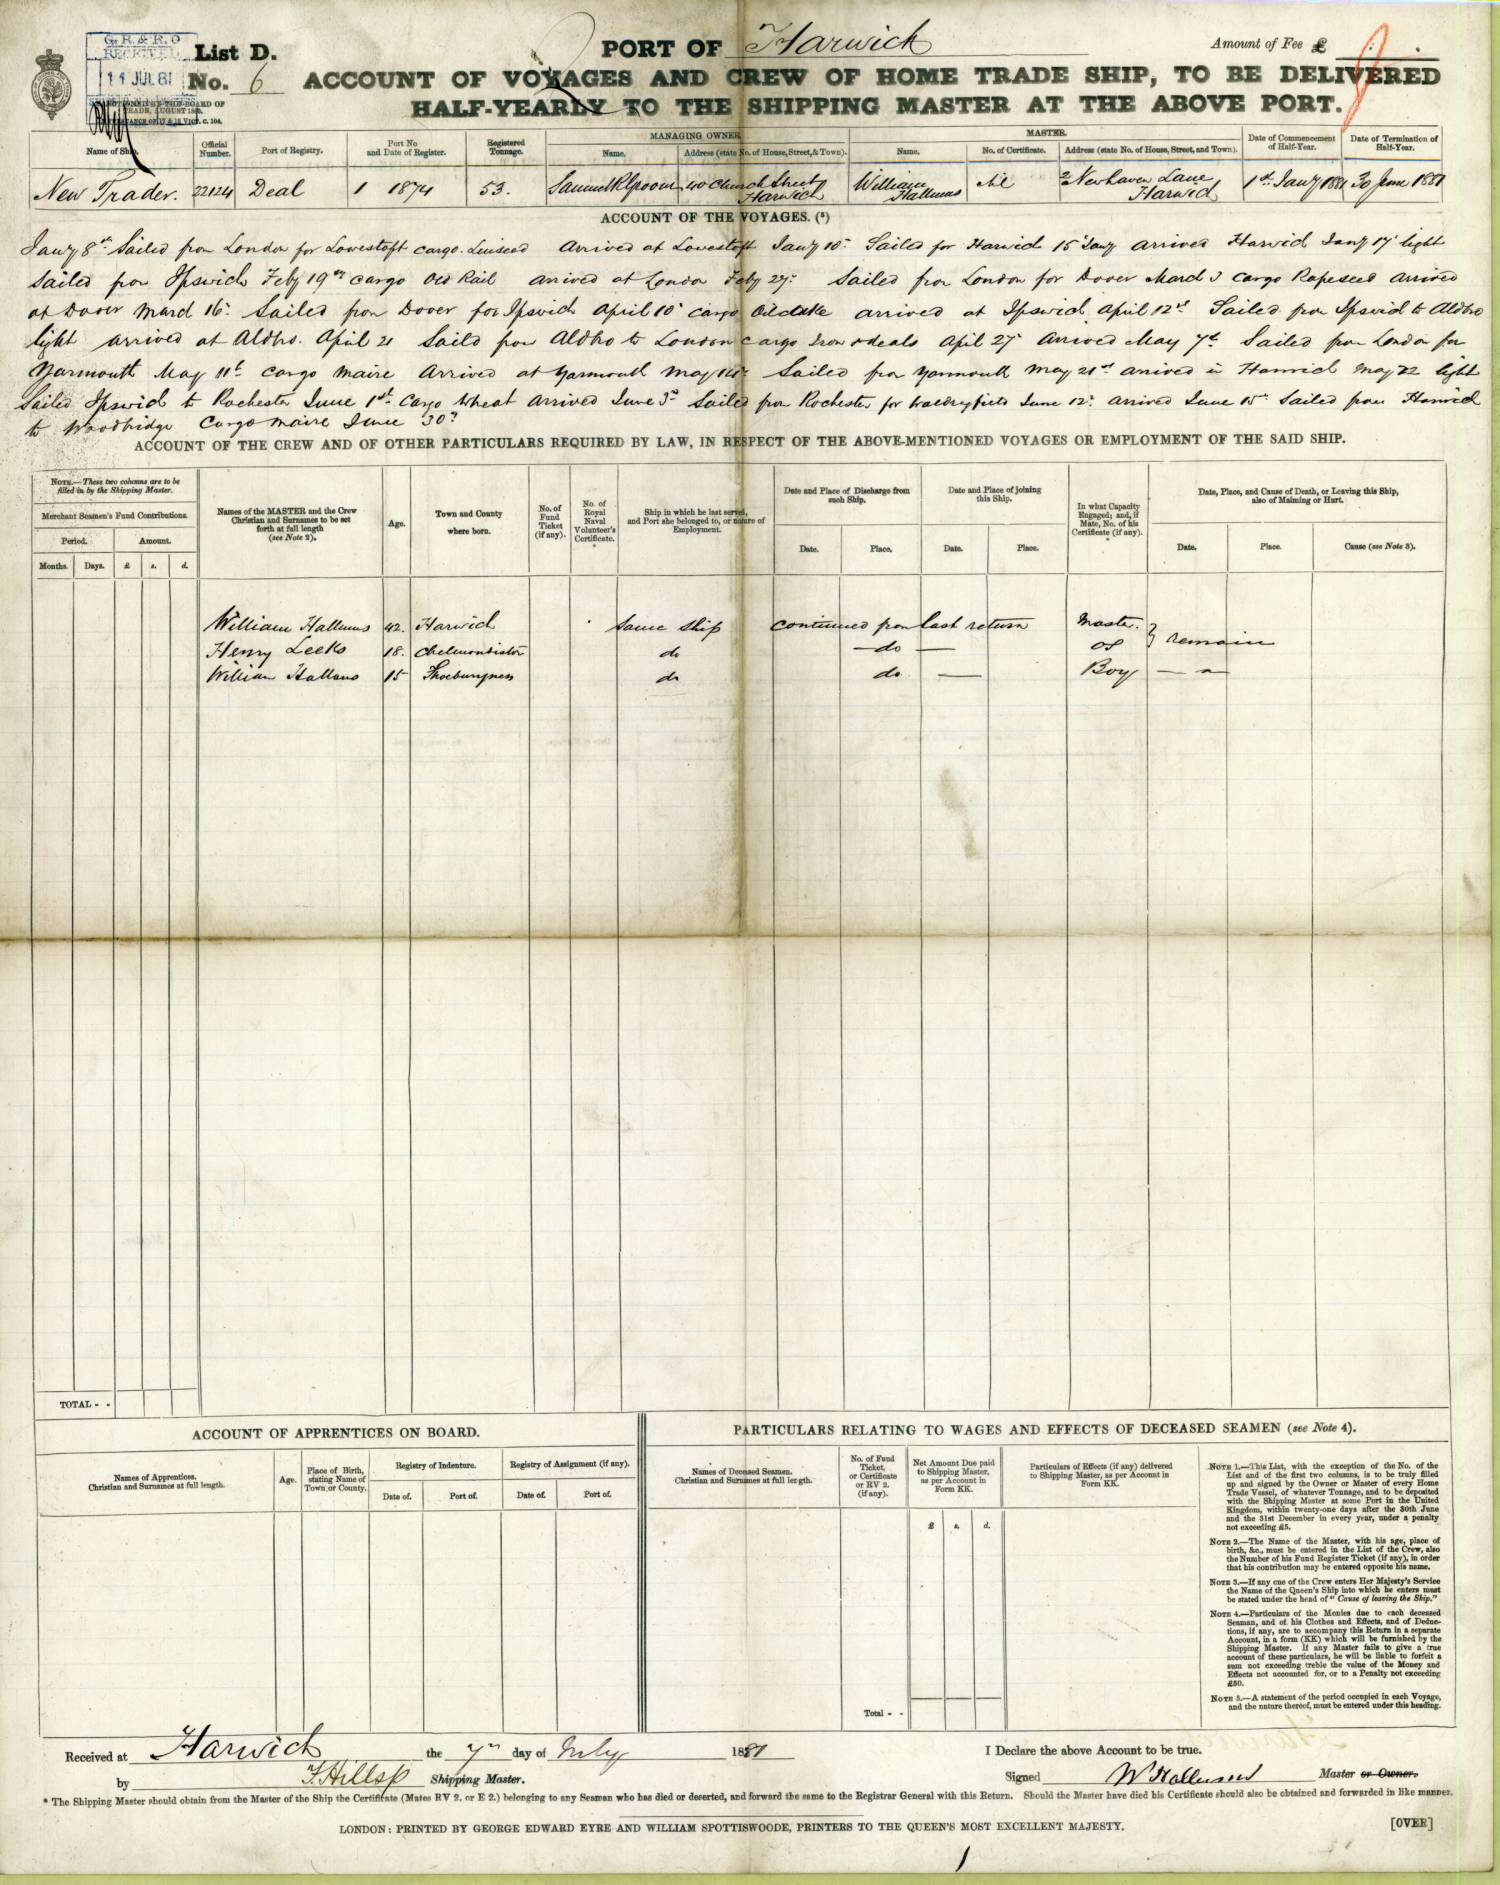 G. R. & R. O
RECEIVED
11 JUL 81
List D.
No. 6
SANCTIONED BY THE BOARD OF
TRADE, AUGUST
IN PURSUANCE OF 17 & 18 VICT. c. 104.
PORT OF Harwich
Amount of Fee £
ACCOUNT OF VOYAGES AND CREW OF HOME TRADE SHIP, TO BE DELIVERED
HALF-YEARLY TO THE SHIPPING MASTER AT THE ABOVE PORT.
Name of Ship. Official Number. Port of Registry. Port No and Date of Register. Registered Tonnage. MANAGING OWNER Name. Address (state No. of House, Street, & Town). MASTER. Name. No. of Certificate. Address (state No. of House, Street, and Town). Date of Commencement of Half-Year. Date of Termination of Half-Year.
New Trader. 22124 Deal 1 1874 53. Samuel R Groom 40 Church Street Harwich William Hallums Nil 2 Newhaven Lane Harwich 1st Jany 1881 30 June 1881
ACCOUNT OF THE VOYAGES. (5)
Jany 8th Sailed from London for Lowestoft cargo. Linseed Arrived at Lowestoft Jany 10th Sailed for Harwich 15th Jany arrived Harwich Jany 17th light
Sailed from Ipswich Feby 19th cargo Old Rail arrived at London Feby 27th Sailed from London for Dover March 3 cargo Rapeseed arrived
at Dover March 16th Sailed from Dover for Ipswich April 10th cargo Oilcake arrived at Ipswich April 12th Sailed from Ipswich to Aldbro
light arrived at Aldbro. April 21 Saild from Aldbro to London cargo Iron & deals April 27 Arrived May 7th Sailed from London for
Yarmouth May 11th cargo Maire Arrived at Yarmouth May 14th Sailed from Yarmouth May 21st arrived in Harwich May 22 light
Sailed Ipswich to Rochester June 1st Cargo Wheat arrived June 3rd Sailed from Rochester for Waldryfield June 12th arrived June 15th Sailed from Harwich
to Woodbridge Cargo Maire June 30th
ACCOUNT OF THE CREW AND OF OTHER PARTICULARS REQUIRED BY LAW, IN RESPECT OF THE ABOVE-MENTIONED VOYAGES OR EMPLOYMENT OF THE SAID SHIP.
NOTE.—These two columns are to be
filled in by the Shipping Master.
Merchant Seamen's Fund Contributions.
Period. Amount.
Months. Days. £ s. d.
Names of the MASTER and the Crew
Christian and Surnames to be set
forth at full length
(see Note 2).
Age.
Town and County
where born.
No. of
Fund
Ticket
(if any).
No. of
Royal
Naval
Volunteer's
Certificate.
*
Ship in which he last served,
and Port she belonged to, or nature of
Employment.
Date and Place of Discharge from
such Ship.
Date. Place.
Date and Place of joining
this Ship.
Date. Place.
In what Capacity
Engaged; and, if
Mate, No. of his
Certificate (if any).
*
Date, Place, and Cause of Death, or Leaving this Ship,
also of Maiming or Hurt.
Date. Place. Cause (see Note 3).
William Hallums 42. Harwich same ship continued from last return Master. } remain
Henry Leeks 18. Chelmondiston do —do— OS
William Hallums 15 Shoeburyness do do — Boy — " —
TOTAL - -
ACCOUNT OF APPRENTICES ON BOARD.
Names of Apprentices.
Christian and Surnames at full length.
Age.
Place of Birth,
stating Name of
Town or County.
Registry of Indenture.
Date of. Port of.
Registry of Assignment (if any).
Date of. Port of.
PARTICULARS RELATING TO WAGES AND EFFECTS OF DECEASED SEAMEN (see Note 4).
Names of Deceased Seamen.
Christian and Surnames at full length.
No. of Fund
Ticket,
or Certificate
or RV 2.
(if any).
Net Amount Due paid
to Shipping Master,
as per Account in
Form KK.
£ s. d.
Particulars of Effects (if any) delivered
to Shipping Master, as per Account in
Form KK.
Total - -
NOTE 1.—This List, with the exception of the No. of the
List and of the first two columns, is to be truly filled
up and signed by the Owner or Master of every Home
Trade Vessel, of whatever Tonnage, and to be deposited
with the Shipping Master at some Port in the United
Kingdom, within twenty-one days after the 30th June
and the 31st December in every year, under a penalty
not exceeding £5.
NOTE 2.—The Name of the Master, with his age, place of
birth, &c., must be entered in the List of the Crew, also
the Number of his Fund Register Ticket (if any), in order
that his contribution may be entered opposite his name.
NOTE 3.—If any one of the Crew enters Her Majesty's Service
the Name of the Queen's Ship into which he enters must
be stated under the head of "Cause of leaving the Ship."
NOTE 4.—Particulars of the Monies due to each deceased
Seaman, and of his Clothes and Effects, and of Deduc-
tions, if any, are to accompany this Return in a separate
Account, in a form (KK) which will be furnished by the
Shipping Master. If any Master fails to give a true
account of these particulars, he will be liable to forfeit a
sum not exceeding treble the value of the Money and
Effects not accounted for, or to a Penalty not exceeding
£50.
NOTE 5.—A statement of the period occupied in each Voyage,
and the nature thereof, must be entered under this heading.
Received at Harwich the 7th day of July 1881
by F. Hillsp Shipping Master.
I Declare the above Account to be true.
Signed W Hallums Master or Owner.
* The Shipping Master should obtain from the Master of the Ship the Certificate (Mates RV 2. or E 2.) belonging to any Seaman who has died or deserted, and forward the same to the Registrar General with this Return. Should the Master have died his Certificate should also be obtained and forwarded in like manner.
LONDON: PRINTED BY GEORGE EDWARD EYRE AND WILLIAM SPOTTISWOODE, PRINTERS TO THE QUEEN'S MOST EXCELLENT MAJESTY.
[OVER]
1